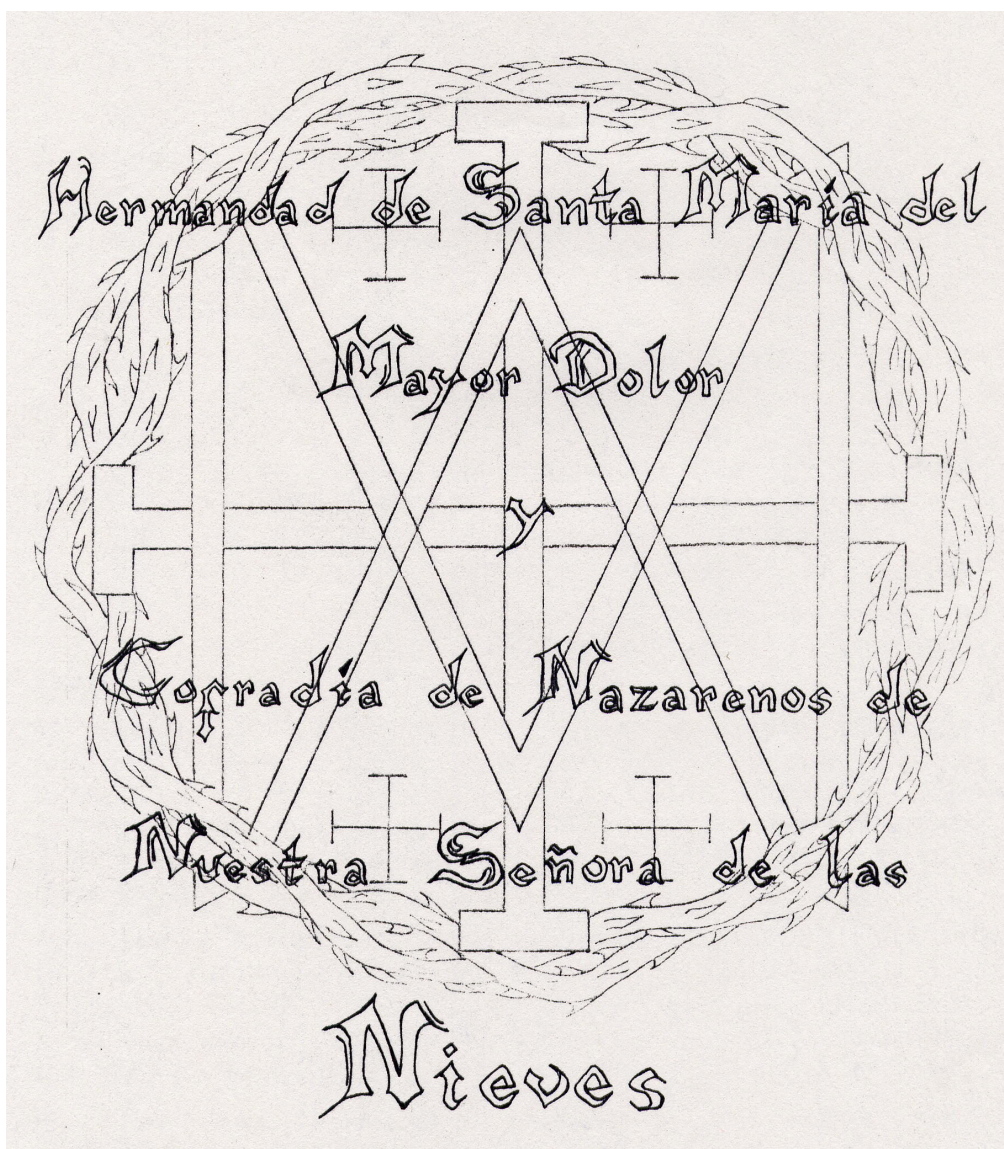 Hermandad de Santa María del
Mayor Dolor
y
Cofradía de Nazarenos de
Nuestra Señora de las
Nieves